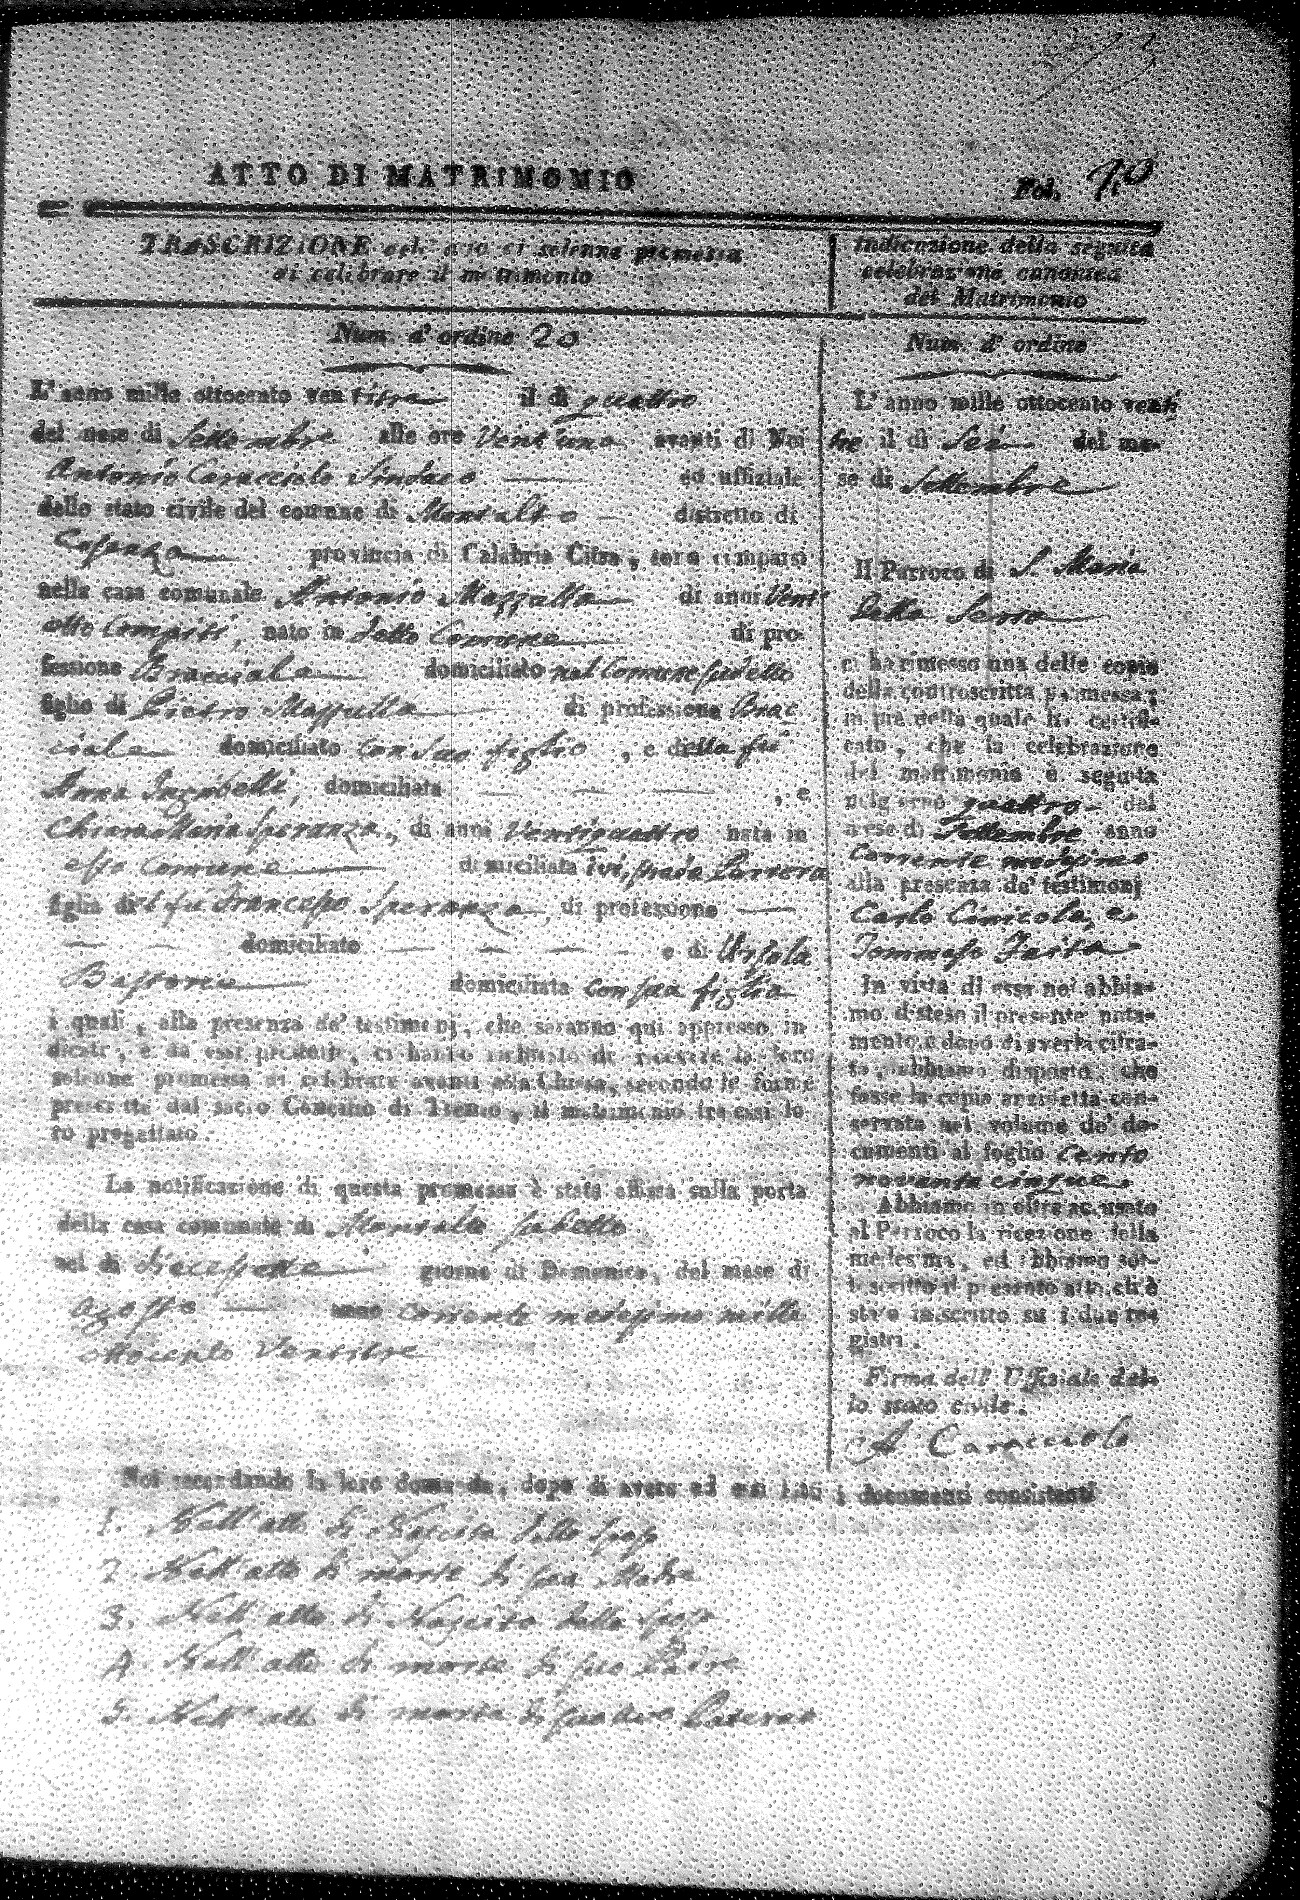 ATTO DI MATRIMONIO
Fol. 10
TRASCRIZIONE dell' atto di solenne promessa
di celibrare il matrimonio
Num. d' ordine 20
L'anno mille ottocento ventitre il dì quattro
del mese di Settembre alle ore Vent'una avanti di Noi
Antonio Caracciolo Sindaco ed uffiziale
dello stato civile del comune di Montalto distretto di
Cosenza provincia di Calabria Citra, sono comparsi
nella casa comunale Antonio Mazzulla di anni Vent'
otto Compiti, nato in detto Comune di pro-
fessione Bracciale domiciliato nel Comune sudetto
figlio di Pietro Mazzulla di professione Brac
ciale domiciliato con suo figlio, e della fu
Anna domiciliata , e
Chiara Maria Speranza, di anni Ventiquattro nata in
esso Comune domiciliata ivi,
figlia del fu Francesco Speranza, di professione
domiciliato e di Ursola
domiciliata con sua figlia
i quali, alla presenza de' testimonj, che saranno qui appresso in
dicati, e da essi prodotti, ci hanno richiesto di ricevere la loro
solenne promessa di celebrare avanti alla Chiesa, secondo le forme
prescritte dal sacro Concilio di Trento, il matrimonio tra essi lo
ro progettato.
La notificazione di questa promessa è stata affissa sulla porta
della casa comunale di Montalto sudetto
nel dì diecissette giorno di Domenica, del mese di
Agosto anno corrente medesimo mille
ottocento Ventitre
Indicazione della seguita
celebrazione canonica
del Matrimonio
Num. d' ordine
L'anno mille ottocento venti
tre il dì Sei del me-
se di Settembre
Il Parroco di S. Maria
della Serra
ci ha rimesso una delle copie
della controscritta promessa;
in piè della quale ha certifi-
cato, che la celebrazione
del matrimonio è seguita
nel giorno quattro del
mese di Settembre anno
corrente medesimo
alla presenza de' testimonj
Carlo Cinicola, e
Tommaso Faita
In vista di essa noi abbia-
mo disteso il presente nota-
mento, e dopo di averla cifra-
ta, abbiamo disposto, che
fosse la copia anzidetta con-
servata nel volume de' do-
cumenti al foglio cento
novanta cinque.
Abbiamo in oltre accusato
al Parroco la ricezione della
medesima, ed abbiamo sot-
toscritto il presente atto, ch'è
stato inscritto su i due re-
gistri.
Firma dell' Uffiziale del-
lo stato civile.
A Caracciolo
Noi secondando la loro domanda, dopo di avere ad essi letti i documenti consistenti
1. Nell' atto di Nascita dello sposo
2. Nell' atto di morte di sua Madre
3. Nell' atto di Nascita della sposa
4. Nell' atto di morte di suo Padre
5. Nell' atto di morte di suo avo Paterno